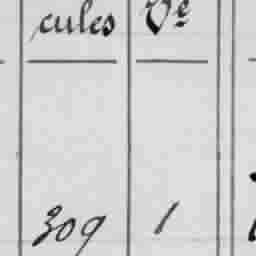 cules Ve
309 1